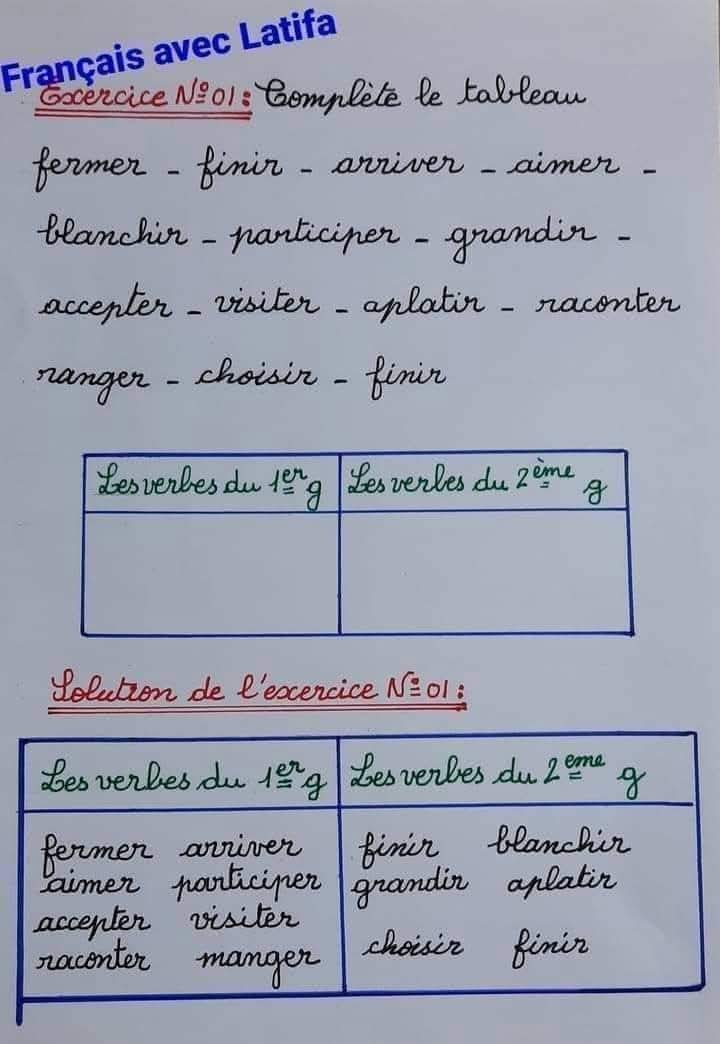 Français avec Latifa
Exercice Nº 01 : Complète le tableau
fermer - finir - arriver - aimer -
blanchir - participer - grandir -
accepter - visiter - aplatir - raconter
ranger - choisir - finir
Les verbes du 1er g
Les verbes du 2ème g
Solution de l'exercice Nº 01 :
Les verbes du 1er g
Les verbes du 2eme g
fermer arriver
aimer participer
accepter visiter
raconter manger
finir blanchir
grandir aplatir
choisir finir